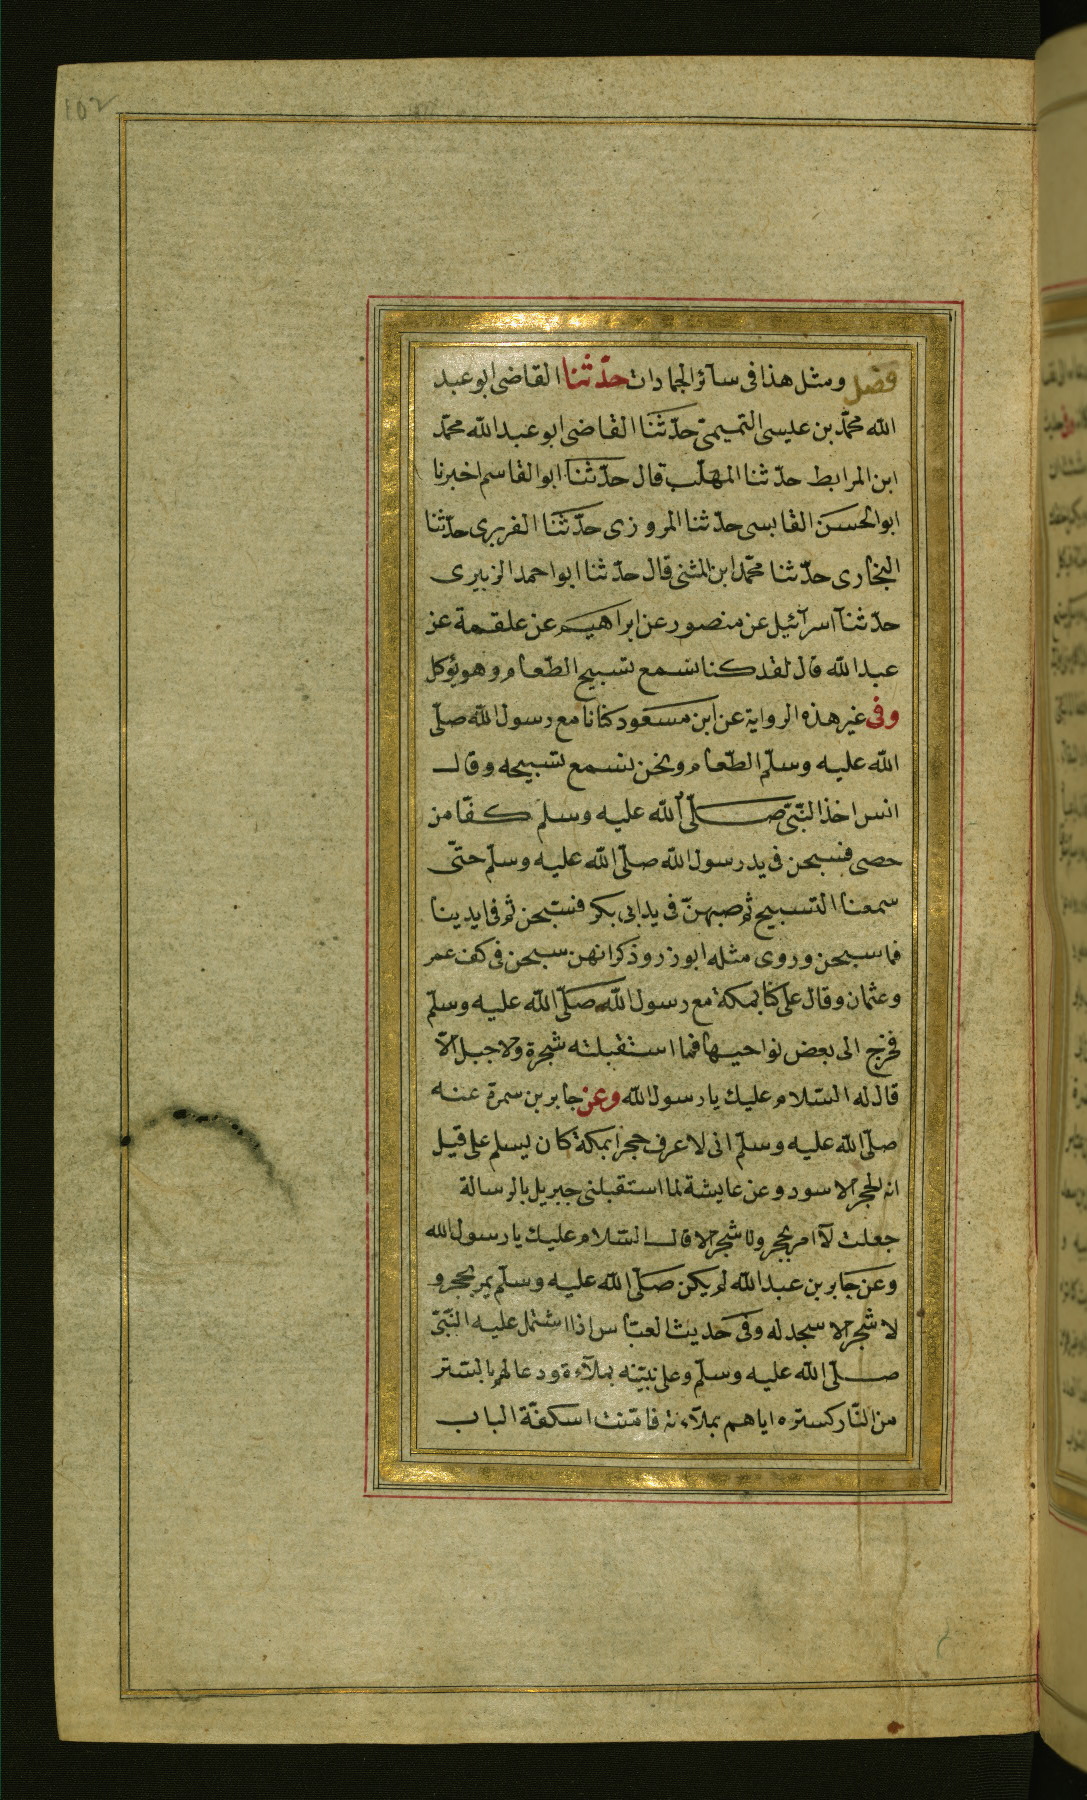 ١٥٢
فصل ومثل هذا فى سآئر الجمادات حدّثنا القاضى ابو عبد
الله محمّد بن عيسى التميمىّ حدّثنا القاضى ابو عبد الله محمّد
ابن المرابط حدّثنا المهلّب قال حدّثنا ابو القاسم اخبرنا
ابو الحسن القابسى حدّثنا المروزى حدّثنا الفربرى حدّثنا
البخارى حدّثنا محمّد ابن المثنى قال حدّثنا ابو احمد الزبيرى
حدّثنآ اسرآئيل عن منصور عن ابراهيم عن علقمة عن
عبد الله قال لقد كنا نسمع تسبيح الطّعام وهو يؤكل
وفى غير هذه الرواية عن ابن مسعود كنا نا مع رسول الله صلّى
الله عليه وسلّم الطّعام ونحن نسمع تسبيحه وقال
انس اخذ النّبىّ صلّى الله عليه وسلم كفّا من
حصى فسبحن فى يد رسول الله صلّى الله عليه وسلّم حتّى
سمعنا التسبيح ثم صبهنّ فى يد ابى بكر فسبّحن ثم فى ايدينا
فما سبحن وروى مثله ابو ذر وذكر انهن سبحن فى كف عمر
وعثمان وقال على كنّا بمكة مع رسول الله صلّى الله عليه وسلّم
فخرج الى بعض نواحيها فما استقبلته شجرة ولا جبل الّا
قال له السّلام عليك يا رسول الله وعن جابر بن سمرة عنه
صلّى الله عليه وسلّم انى لاعرف حجرا بمكة كان يسلم على قيل
انه الحجر الاسود وعن عايشة لما استقبلنى جبريل بالرسالة
جعلت لآ امر بحجر ولا شجر الا قال السّلام عليك يا رسول الله
وعن جابر بن عبد الله لم يكن صلّى الله عليه وسلّم يمر بحجر و
لا شجر الا سجد له وفى حديث العبّاس اذا اشتمل عليه النّبىّ
صلّى الله عليه وسلّم وعلى نبيّنه بملآءة ودعا لهم بالستر
من النّار كستره اياهم بملآءته فامّنت اسكفّة الباب